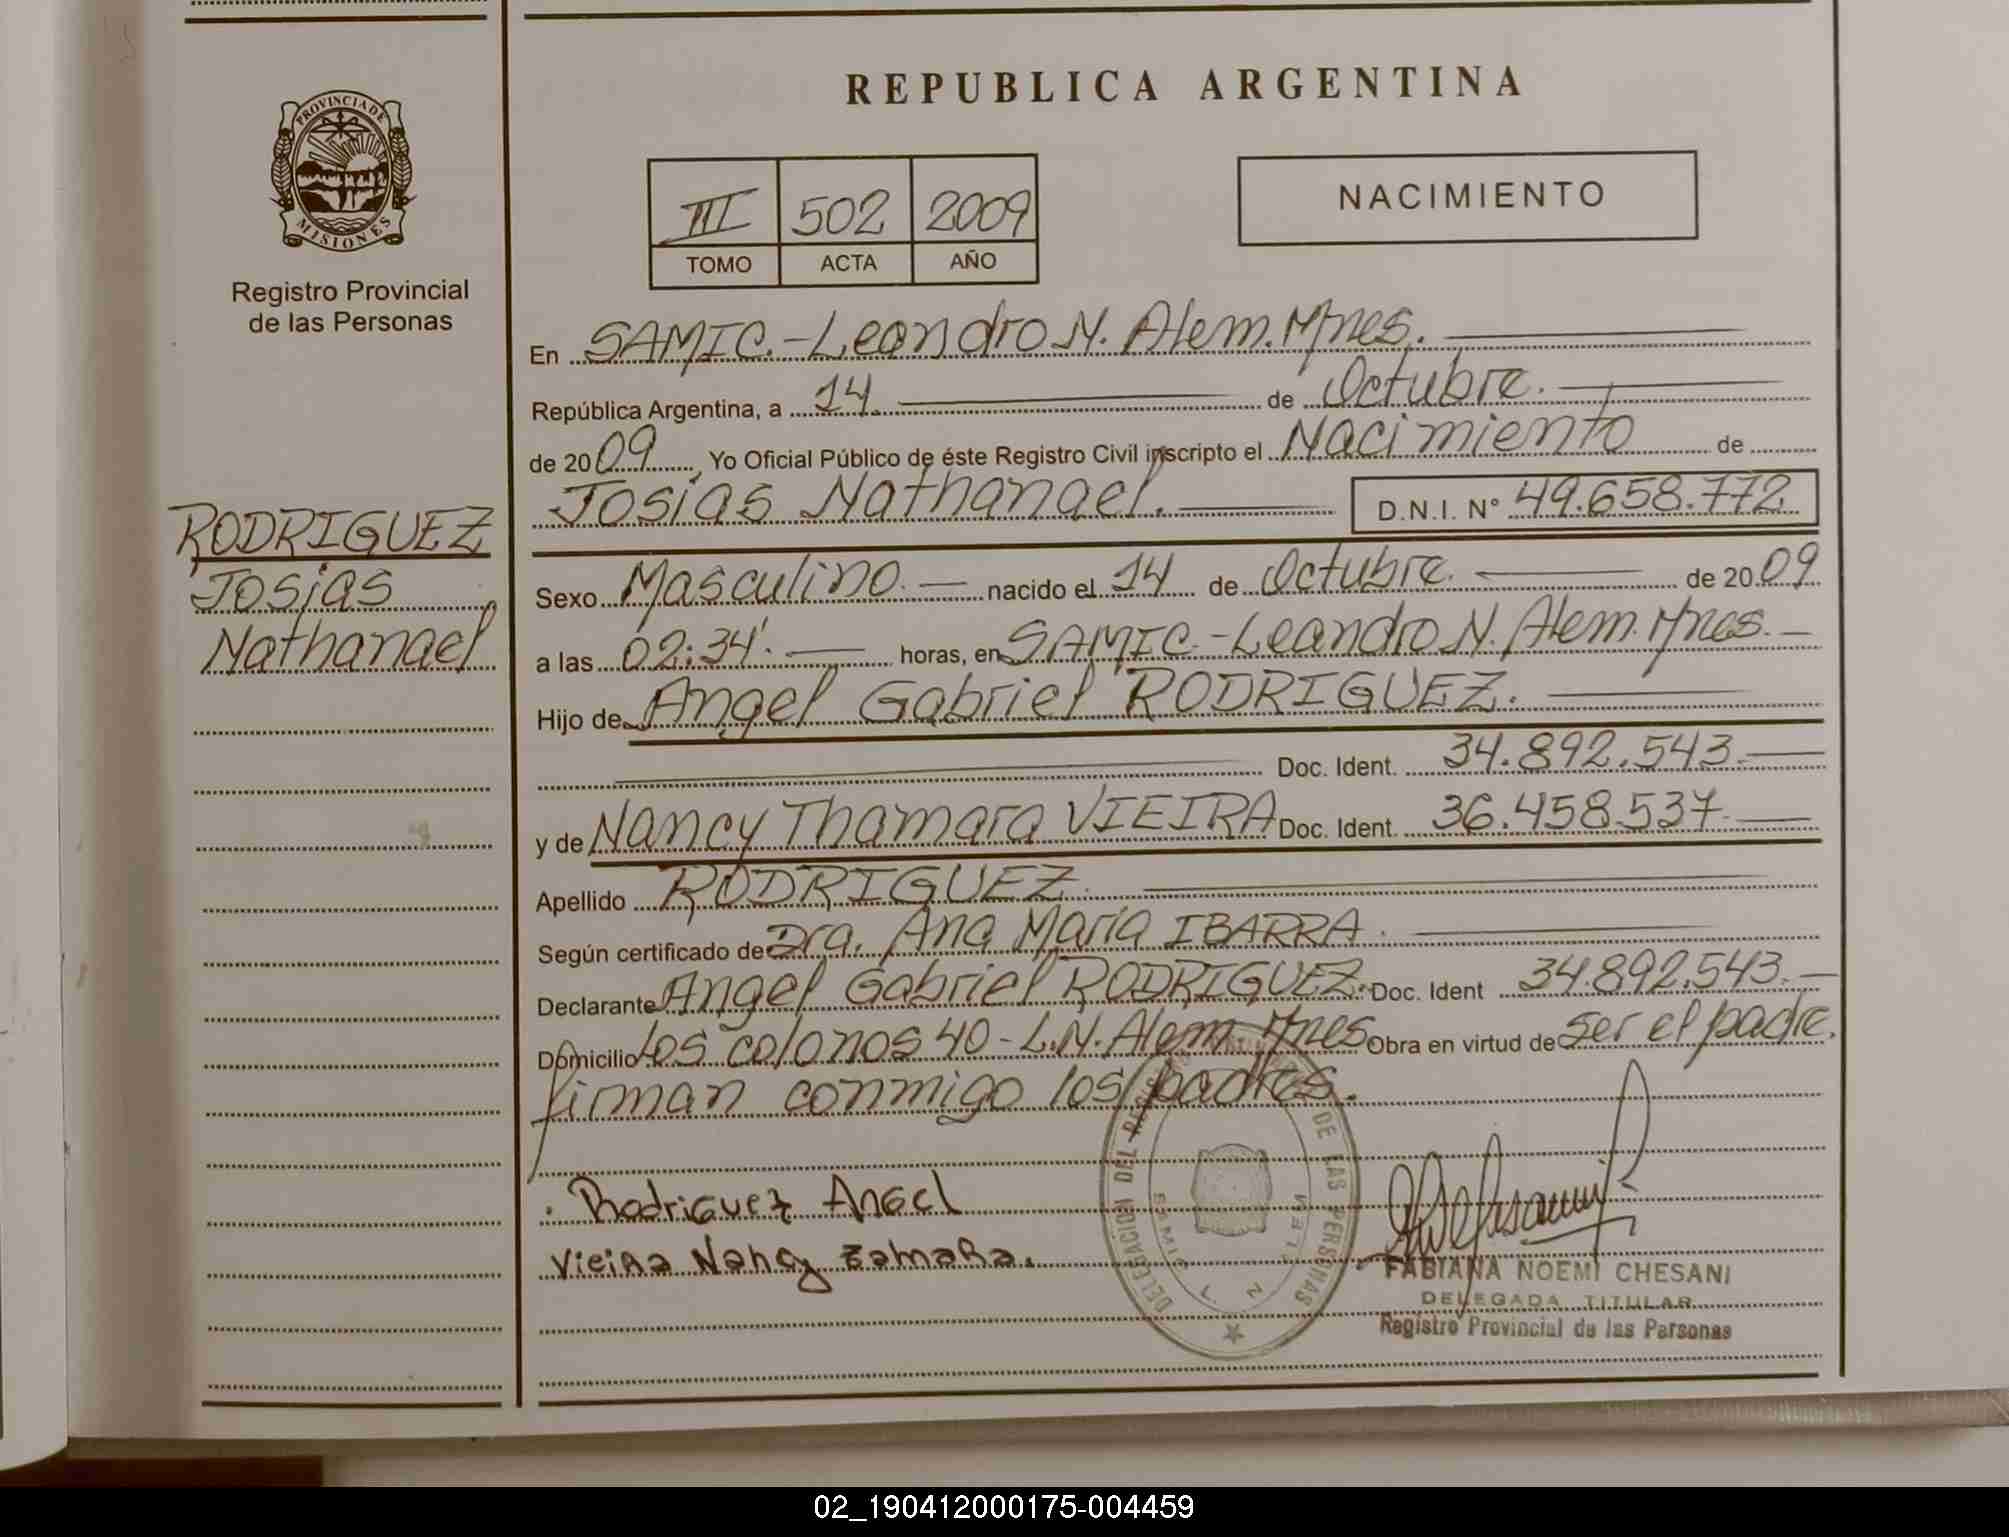 PROVINCIA DE
MISIONES
Registro Provincial
de las Personas
RODRIGUEZ
Josías
Nathanael
REPUBLICA ARGENTINA
III 502 2009
TOMO ACTA AÑO
NACIMIENTO
En SAMIC.-Leandro N. Alem. Mnes.
República Argentina, a 14. de Octubre.
de 2009. Yo Oficial Público de éste Registro Civil inscripto el Nacimiento de
Josías Nathanael. D.N.I. N° 49.658.772
Sexo Masculino. nacido el 14 de Octubre. de 2009
a las 02:34'. horas, en SAMIC.-Leandro N. Alem. Mnes.
Hijo de Angel Gabriel RODRIGUEZ.
Doc. Ident. 34.892.543.
y de Nancy Thamara VIEIRA Doc. Ident. 36.458.537.
Apellido RODRIGUEZ.
Según certificado de Dra. Ana María IBARRA.
Declarante Angel Gabriel RODRIGUEZ. Doc. Ident 34.892.543.
Domicilio Los colonos 40 - L.N. Alem. Mnes Obra en virtud de ser el padre.
firman conmigo los padres.
Rodriguez Angel
Vieira Nancy Tamara.
DELEGACION DEL DE LAS PERSONAS
SAMIC L N ALEM
FABIANA NOEMI CHESANI
DELEGADA TITULAR
Registro Provincial de las Personas
02_190412000175-004459